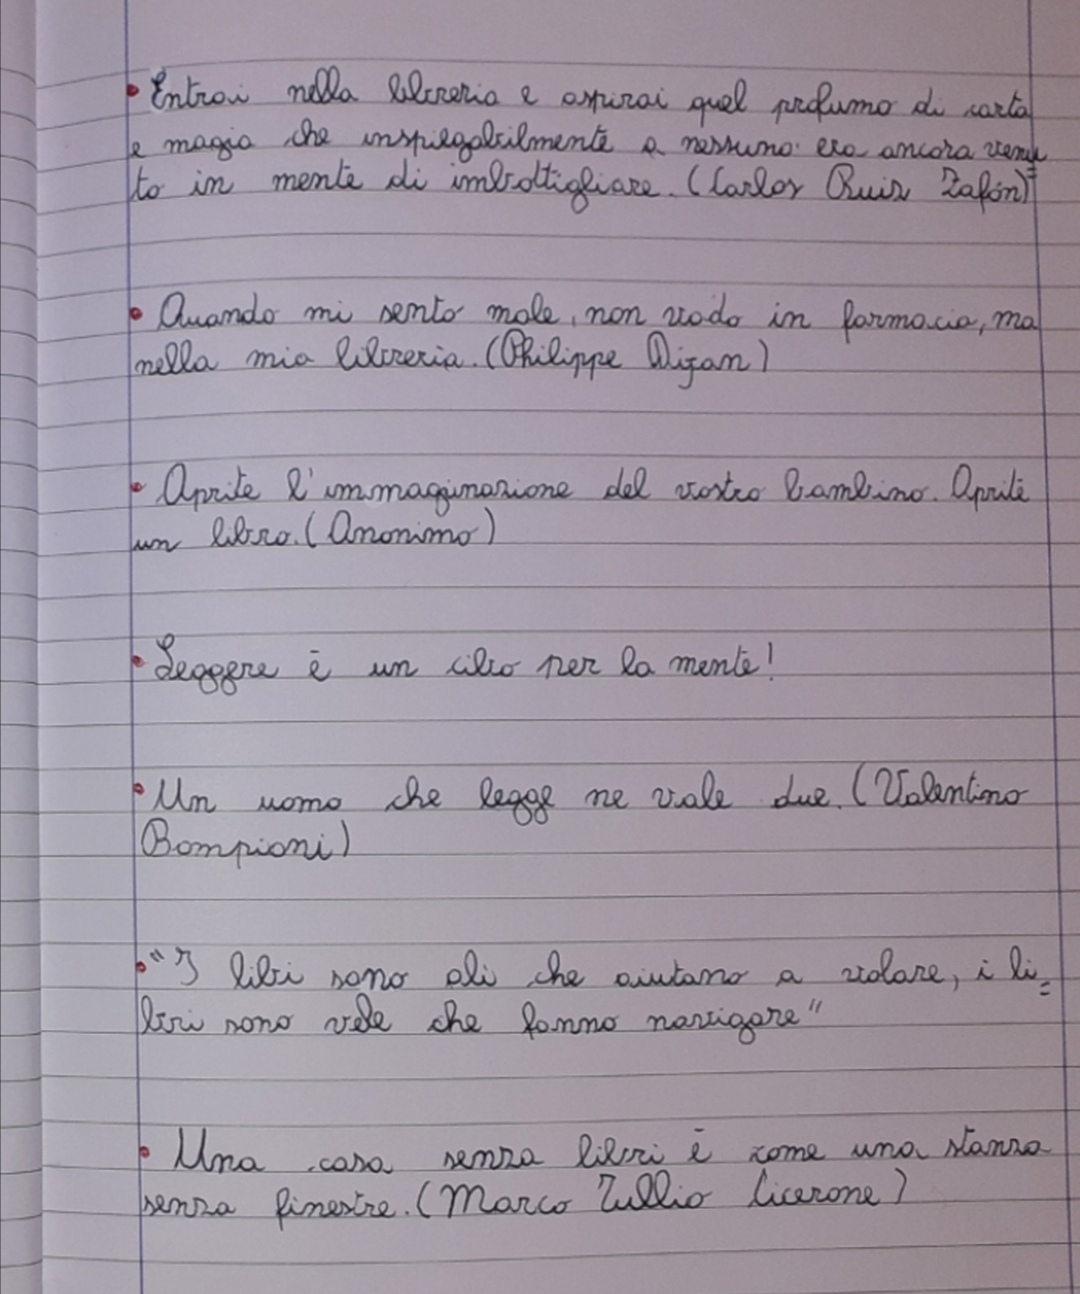 • Entrai nella libreria e aspirai quel profumo di carta
e magia che inspiegabilmente a nessuno era ancora venu
to in mente di imbottigliare. (Carlos Ruiz Zafón)
• Quando mi sento male, non vado in farmacia, ma
nella mia libreria. (Philippe Dijan)
• Aprite l'immaginazione del vostro bambino. Aprite
un libro. (Anonimo)
• Leggere è un cibo per la mente!
• Un uomo che legge ne vale due. (Valentino
Bompioni)
• "I libri sono ali che aiutano a volare, i li=
bri sono vele che fanno navigare"
• Una casa senza libri è come una stanza
senza finestre. (Marco Tullio Cicerone)